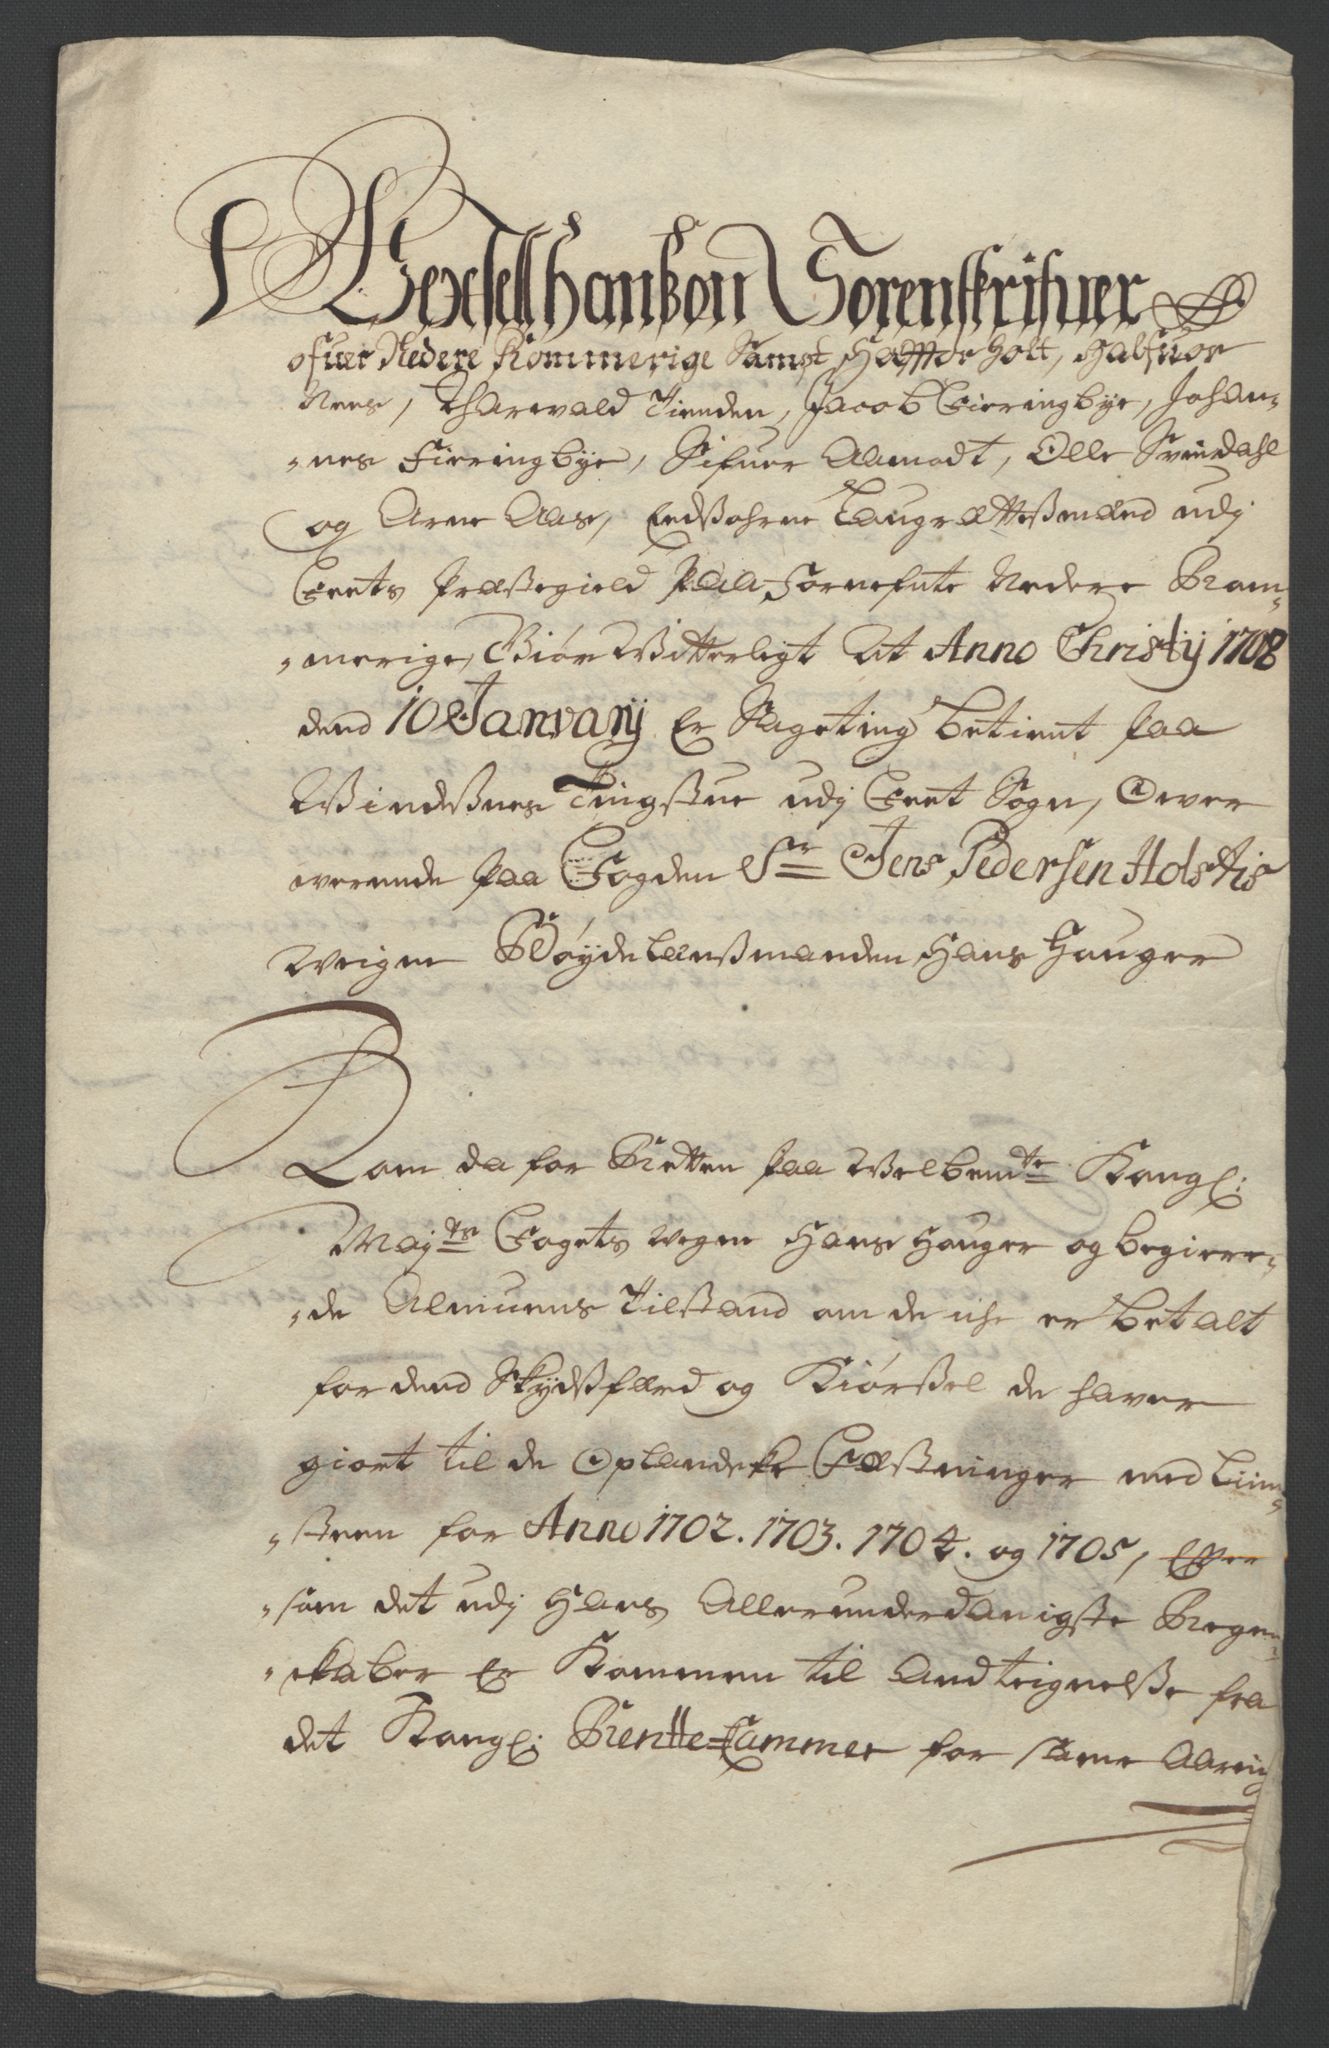 Wexsell hanßon Sorenskrifuer
ofuer Nedere Rommerige Sampt Haffuor Holt, Halfuor
Nees, Tharvald Tienden, Jacob Fierringbye, Johan-
-nes Fierringbye, Sifuer Aamodt, Olle Svindahl
og Arne Aas, Eedßohrne Laugrættesmænd udj
Feets Præstegield paa fornefnte Nedere Rom-
-merige, Giør Witterligt At Anno Christij 1708
dend 10 Janvarij Er Sageting betient paa
Windßnes Tingstue udj Feet Sogn, Over
værende paa Fogden Sr Jens Pedersen Holstis
Weigne Bøydelænßmanden Hans Hauger
Kom da for Retten paa Welbemte Kongl:
Mayts Fogets Wegne Hans Hauger og begiere-
-de Almuens Tilstand om de iche er betalt
for dend Skydsfærd og Kiørßel de haver
giort til de Oplandske Fæstninger med Liim-
-steen for Anno 1702. 1703. 1704. og 1705, Efter
-som det udj Hans Allerunderdanigste Regen-
-skaber Er Kommen til Andteignelße fra
det Kongl: Rentte-Cammer for samme Aaringer